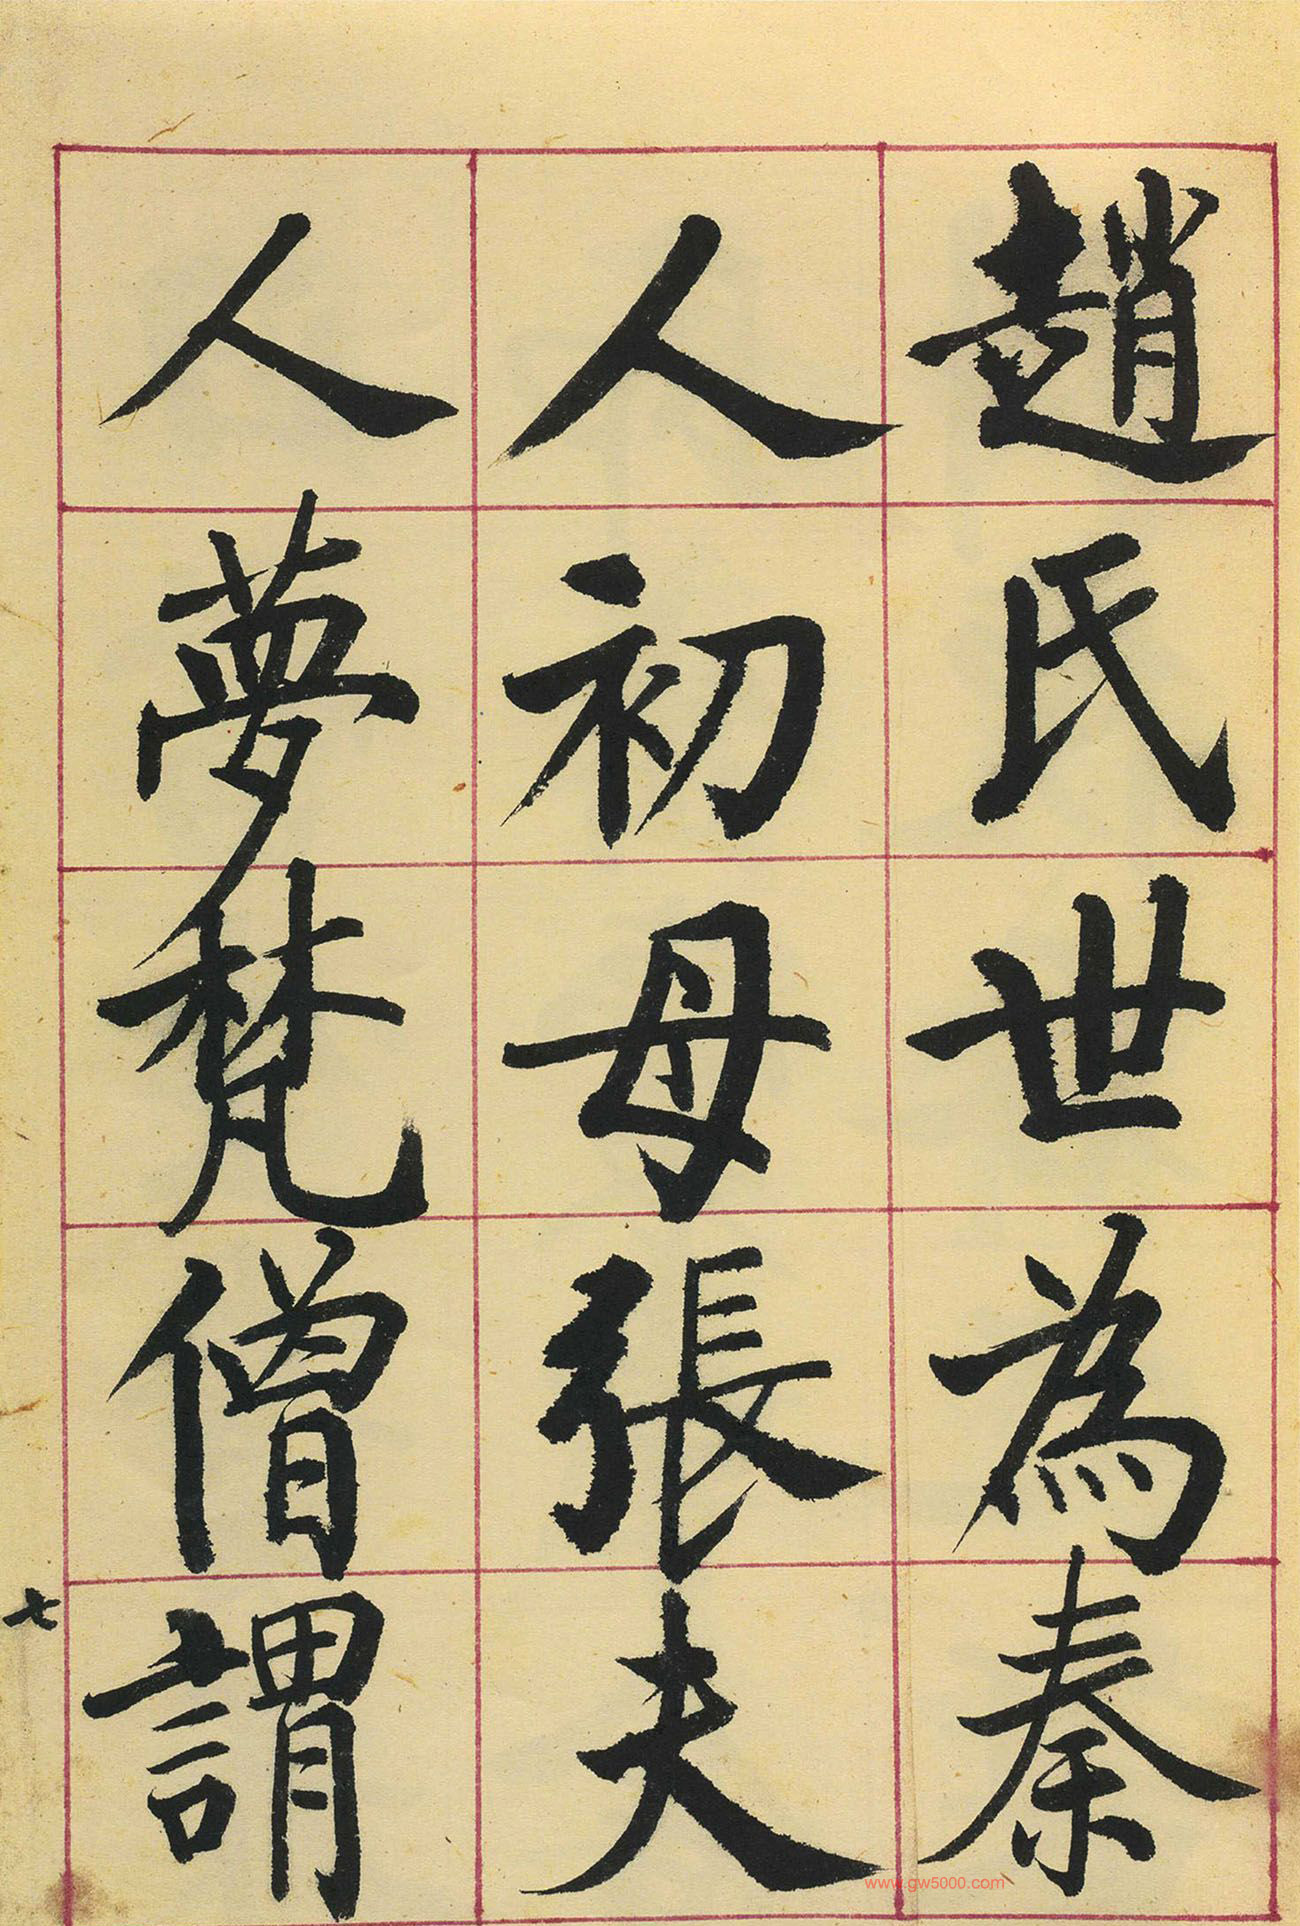 趙氏世為秦
人初母張夫
人夢梵僧謂
七
www.gw5000.com